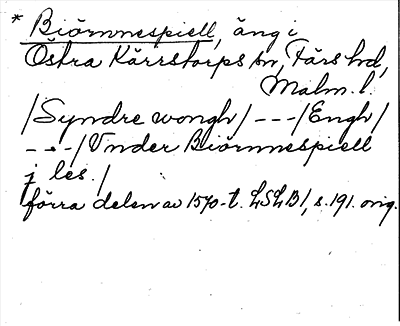 * Biörnnespiell, äng i
Östra Kärrstorps sn, Färs hd,
Malm. l.
/Syndre wongh/ - - - /Engh/
- - - /Vnder Biörnnespiell
j les./
förra delen av 1570-t. LSLB1, s. 191. orig.